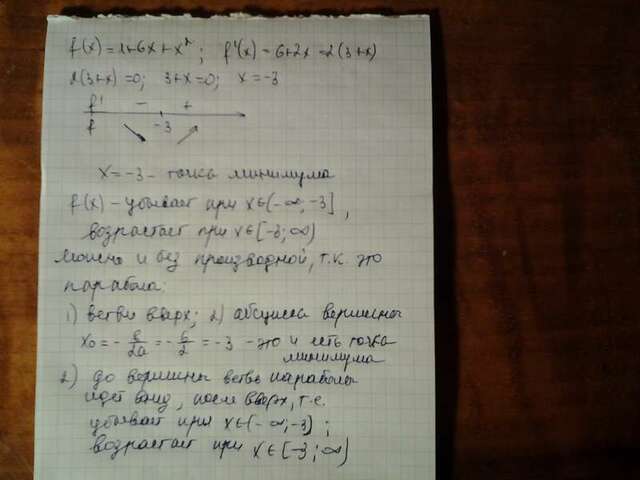 f(x)=1+6x+x²; f'(x)=6+2x=2(3+x)
2(3+x)=0; 3+x=0; x=-3
f' - +
f -3
x=-3 - точка минимума
f(x) - убывает при x∈(-∞,-3],
возрастает при x∈[-3;∞)
Можно и без производной, т.к. это
парабола:
1) ветви вверх; 2) абсцисса вершины
x₀=-в/2a=-6/2=-3 - это и есть точка
минимума
2) до вершины ветвь параболы
идет вниз, после вверх, т.е.
убывает при x∈(-∞;-3];
возрастает при x∈[-3;∞)